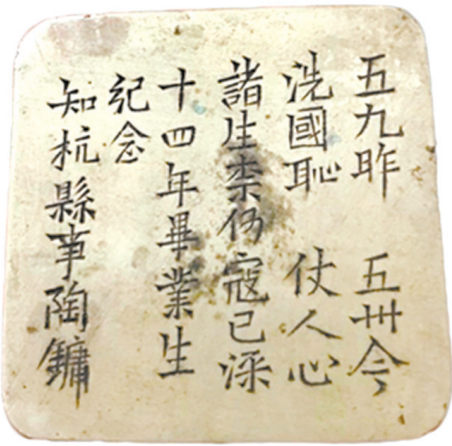 五九昨　五卅今
洗國恥　仗人心
諸生柰何寇已深
十四年畢業生
紀念
知杭縣事陶鏞